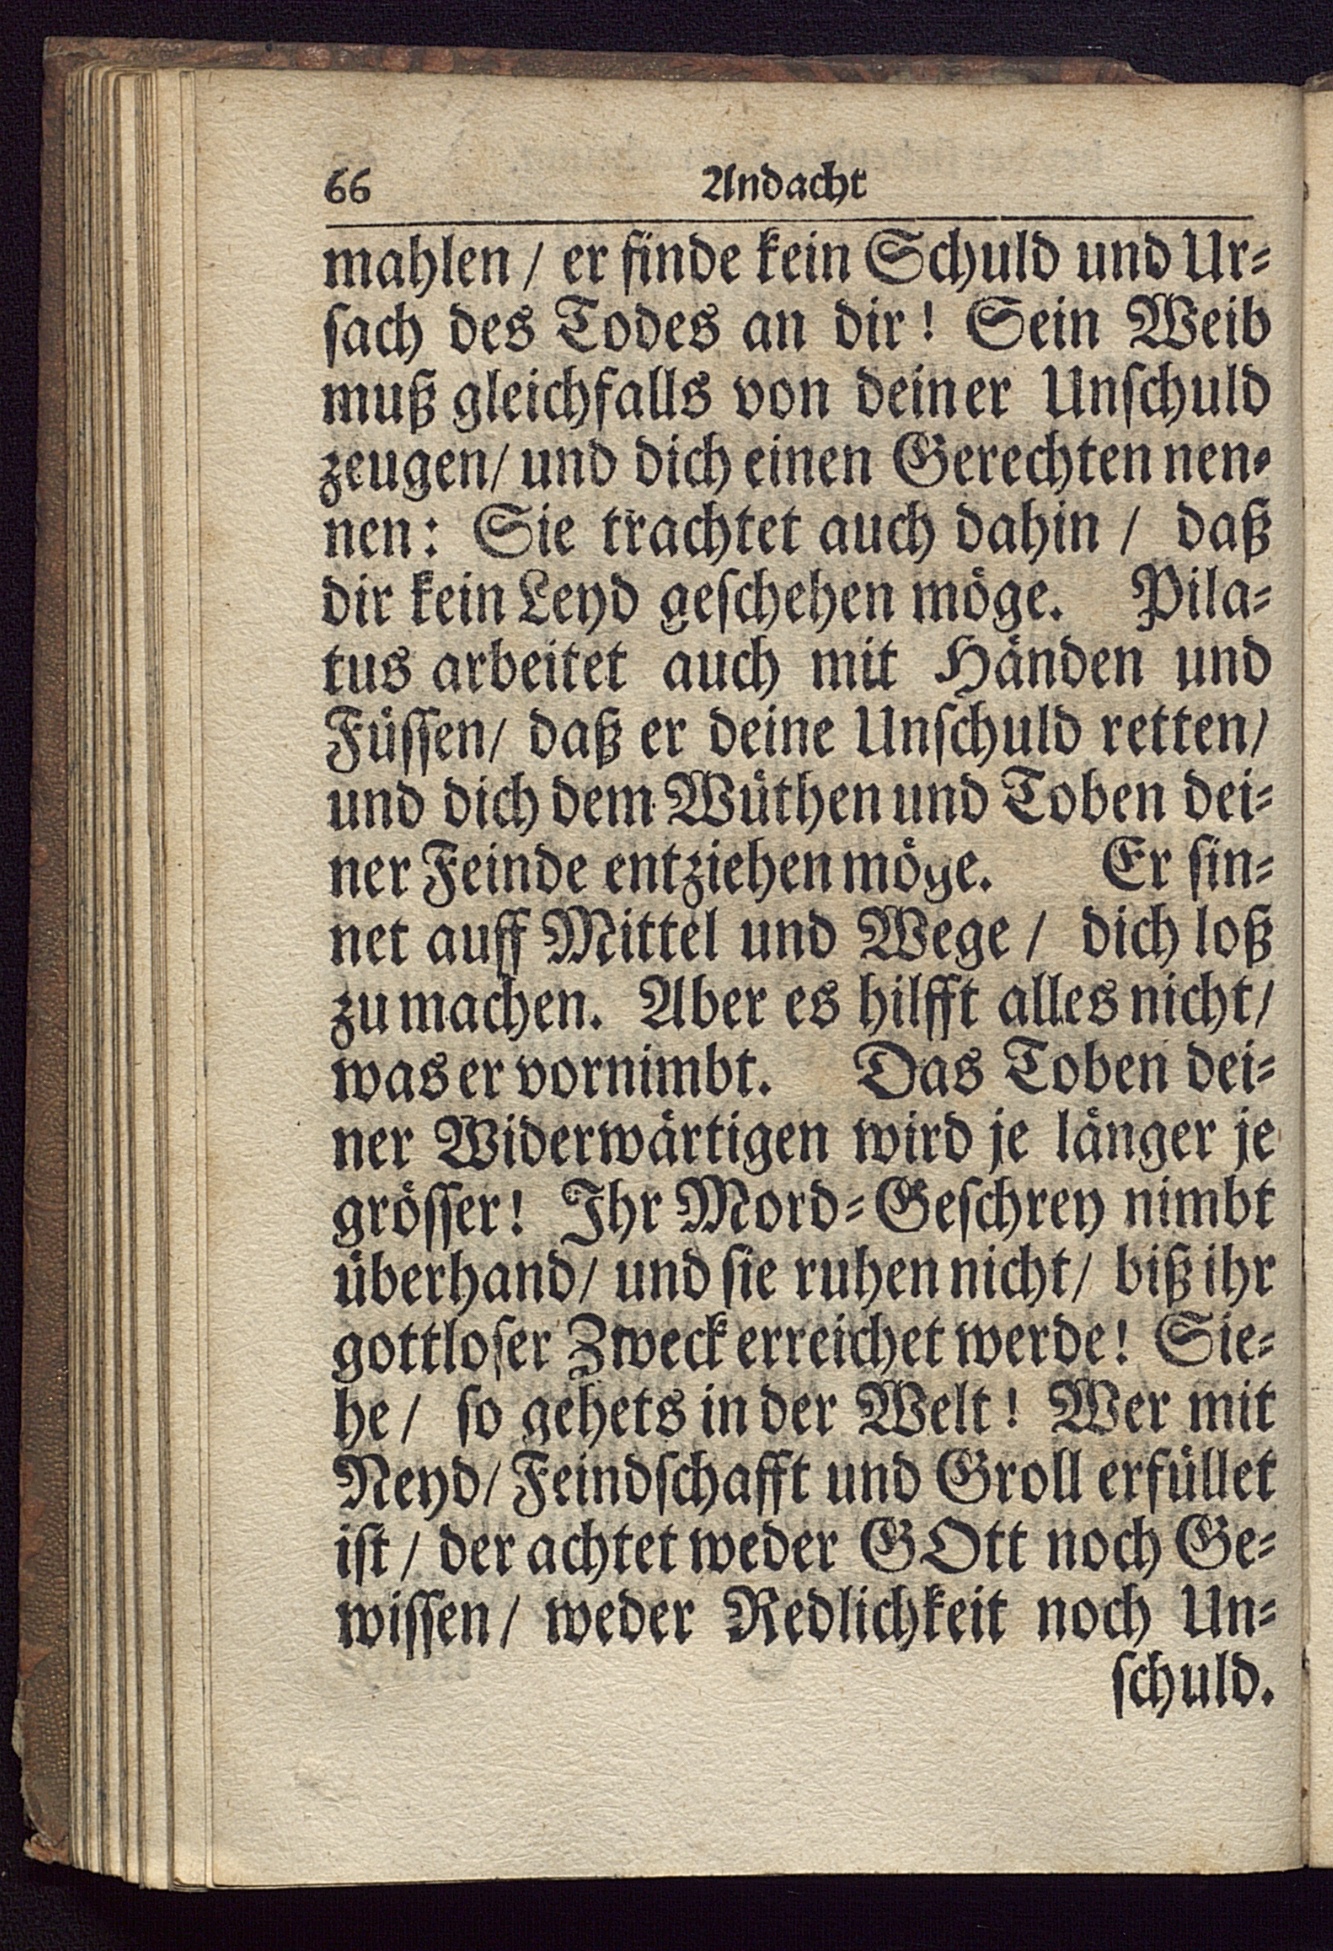 66 Andacht
mahlen / er finde kein Schuld und Ur⸗
ſach des Todes an dir! Sein Weib
muß gleichfalls von deiner Unſchuld
zeugen/ und dich einen Gerechten nen⸗
nen: Sie trachtet auch dahin / daß
dir kein Leyd geſchehen möge. Pila⸗
tus arbeitet auch mit Händen und
Füſſen/ daß er deine Unſchuld retten/
und dich dem Wüthen und Toben dei⸗
ner Feinde entziehen möge. Er ſin⸗
net auff Mittel und Wege / dich loß
zu machen. Aber es hilfft alles nicht/
was er vornimbt. Das Toben dei⸗
ner Widerwärtigen wird je länger je
gröſſer! Ihr Mord⸗Geſchrey nimbt
überhand/ und ſie ruhen nicht/ biß ihr
gottloſer Zweck erreichet werde! Sie⸗
he/ ſo gehets in der Welt! Wer mit
Neyd/ Feindſchafft und Groll erfüllet
iſt / der achtet weder GOtt noch Ge⸗
wiſſen/ weder Redlichkeit noch Un⸗
ſchuld.